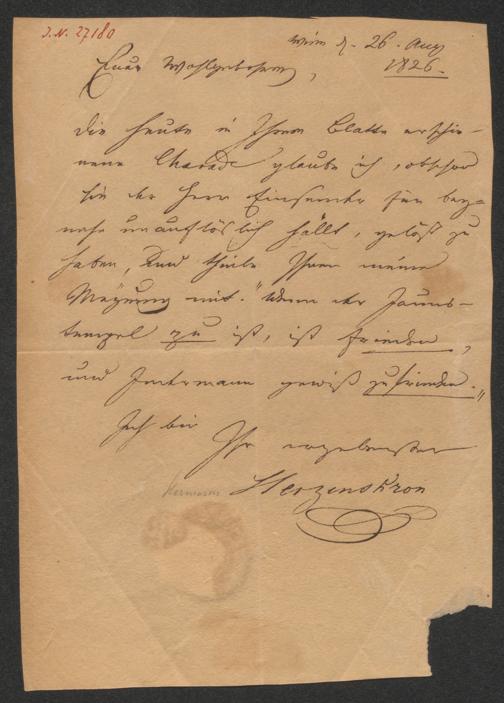 J. N. 27180
Wien d. 26. Aug
1826.
Euer Wohlgeboren,
Die heute in Ihrem Blatte erschie-
nene Charade glaube ich, obschon
sie der Herr Einsender für bey-
nahe unauflöslich hällt, gelöst zu
haben, und theile Ihnen meine
Meynung mit. "Wenn der Janus-
tempel zu ist, ist Frieden,
und Jedermann gewiß zufrieden."
Ich bin
Ihr ergebenster
Hermann Herzenskron